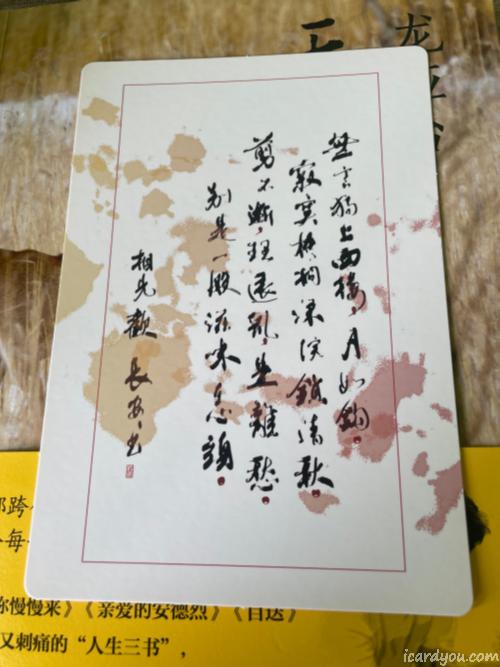 無言獨上西樓，月如鉤。
寂寞梧桐深院鎖清秋。
剪不斷，理還亂，是離愁。
別是一般滋味在心頭。
相見歡 長安 书
龙应台
你慢慢来》《亲爱的安德烈》《目送》
又刺痛的“人生三书”，
icardyou.com